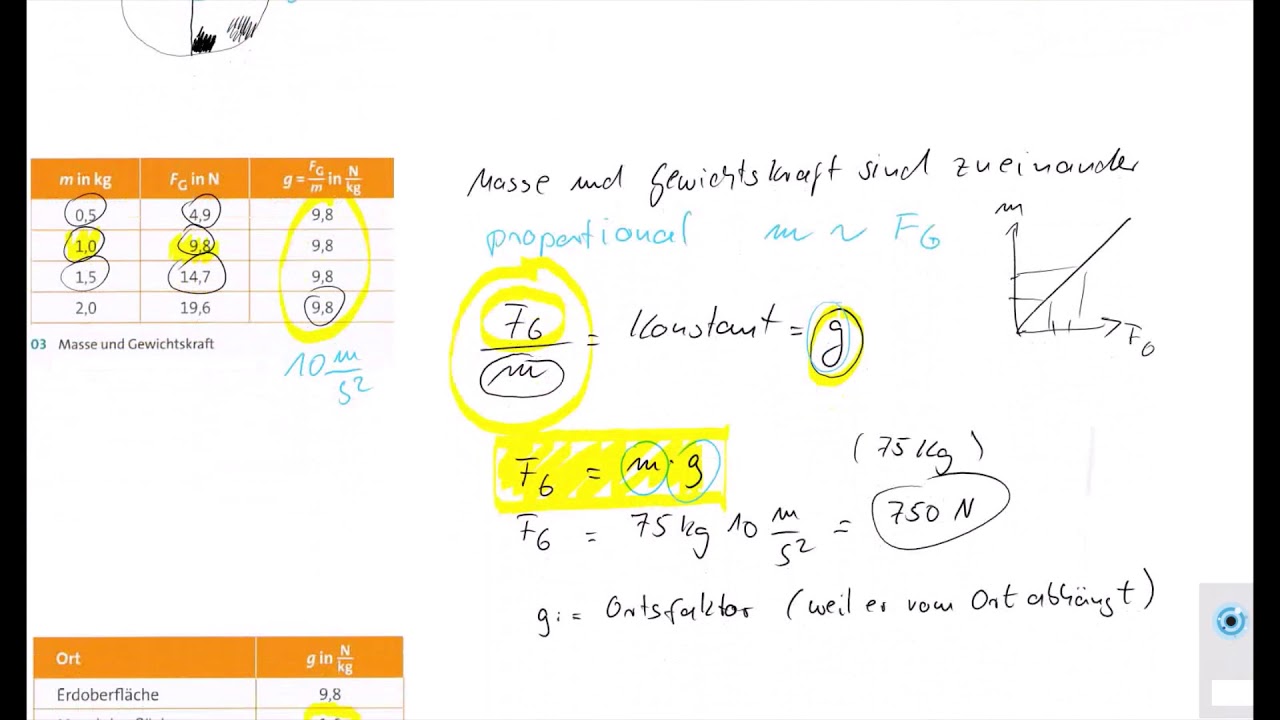 m in kg | F_G in N | g = F_G/m in N/kg
0,5 | 4,9 | 9,8
1,0 | 9,8 | 9,8
1,5 | 14,7 | 9,8
2,0 | 19,6 | 9,8
03 Masse und Gewichtskraft
10 m/s²
Masse und Gewichtskraft sind zueinander
proportional m ~ F_G
m
F_G
F_G/m = Konstant = g
F_G = m · g
(75 kg)
F_G = 75 kg 10 m/s² = 750 N
g := Ortsfaktor (weil er vom Ort abhängt)
Ort | g in N/kg
Erdoberfläche | 9,8